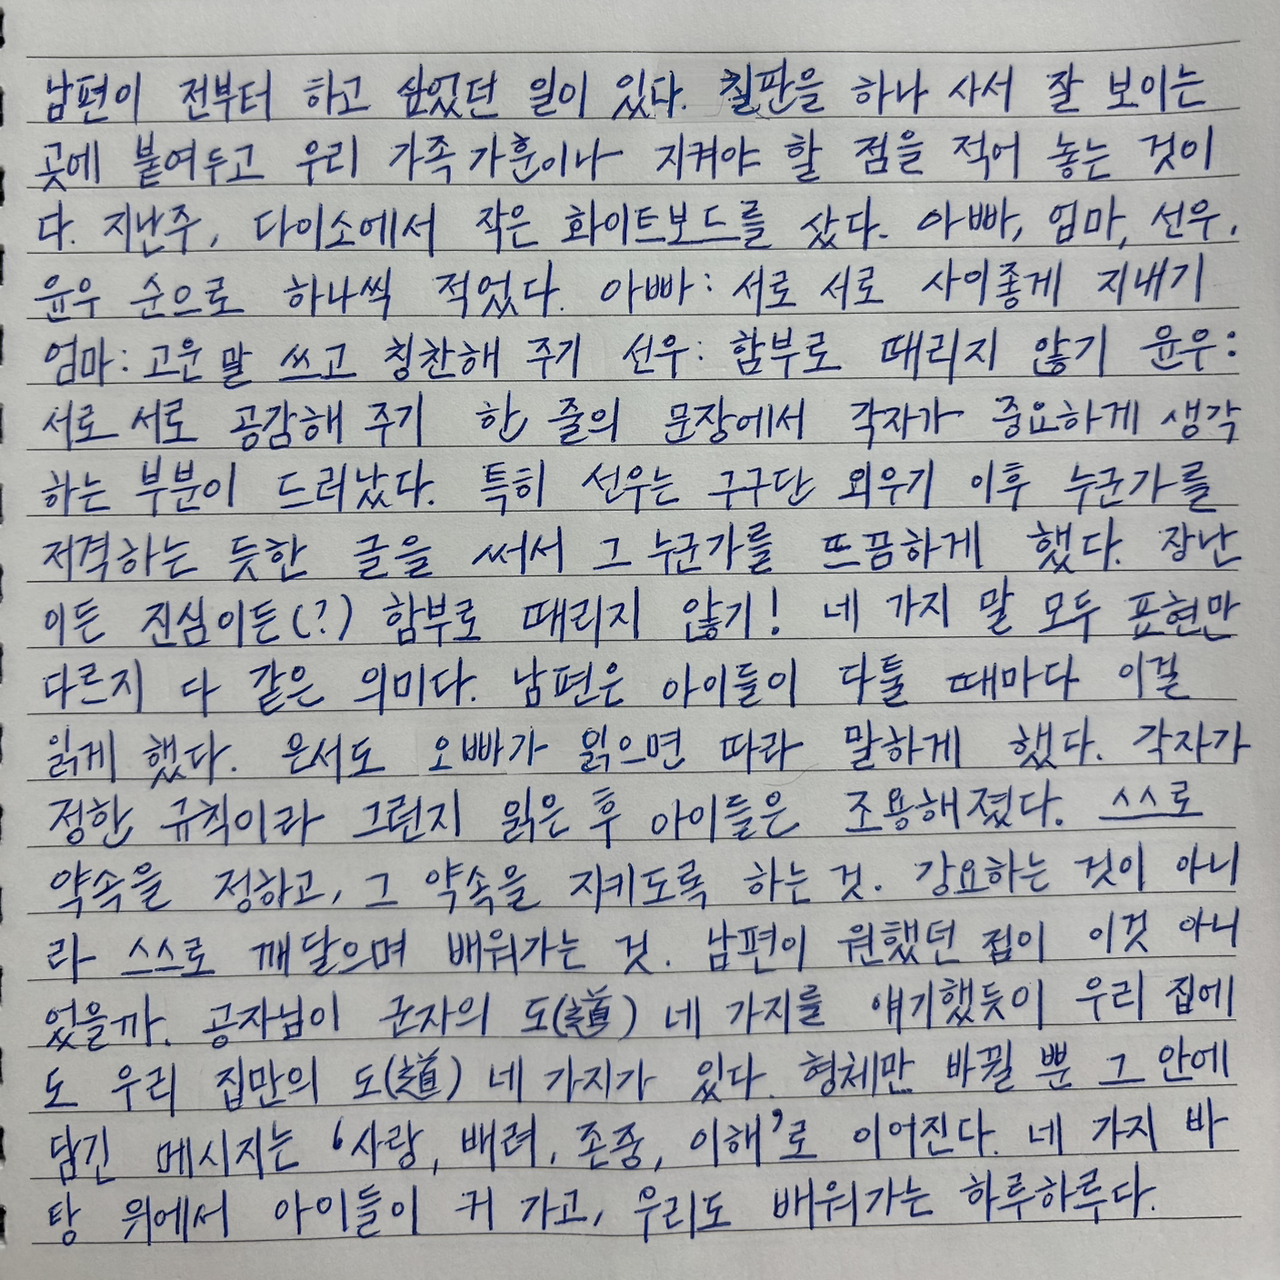 남편이 전부터 하고 싶었던 일이 있다. 칠판을 하나 사서 잘 보이는
곳에 붙여두고 우리 가족 가훈이나 지켜야 할 점을 적어 놓는 것이
다. 지난주, 다이소에서 작은 화이트보드를 샀다. 아빠, 엄마, 선우,
윤우 순으로 하나씩 적었다. 아빠: 서로 서로 사이좋게 지내기
엄마: 고운 말 쓰고 칭찬해 주기 선우: 함부로 때리지 않기 윤우:
서로 서로 공감해 주기 한 줄의 문장에서 각자가 중요하게 생각
하는 부분이 드러났다. 특히 선우는 구구단 외우기 이후 누군가를
저격하는 듯한 글을 써서 그 누군가를 뜨끔하게 했다. 장난
이든 진심이든(?) 함부로 때리지 않기! 네 가지 말 모두 표현만
다르지 다 같은 의미다. 남편은 아이들이 다툴 때마다 이걸
읽게 했다. 은서도 오빠가 읽으면 따라 말하게 했다. 각자가
정한 규칙이라 그런지 읽은 후 아이들은 조용해졌다. 스스로
약속을 정하고, 그 약속을 지키도록 하는 것. 강요하는 것이 아니
라 스스로 깨달으며 배워가는 것. 남편이 원했던 집이 이것 아니
었을까. 공자님이 군자의 도(道) 네 가지를 얘기했듯이 우리 집에
도 우리 집만의 도(道) 네 가지가 있다. 형체만 바뀔 뿐 그 안에
담긴 메시지는 '사랑, 배려, 존중, 이해'로 이어진다. 네 가지 바
탕 위에서 아이들이 커 가고, 우리도 배워가는 하루하루다.